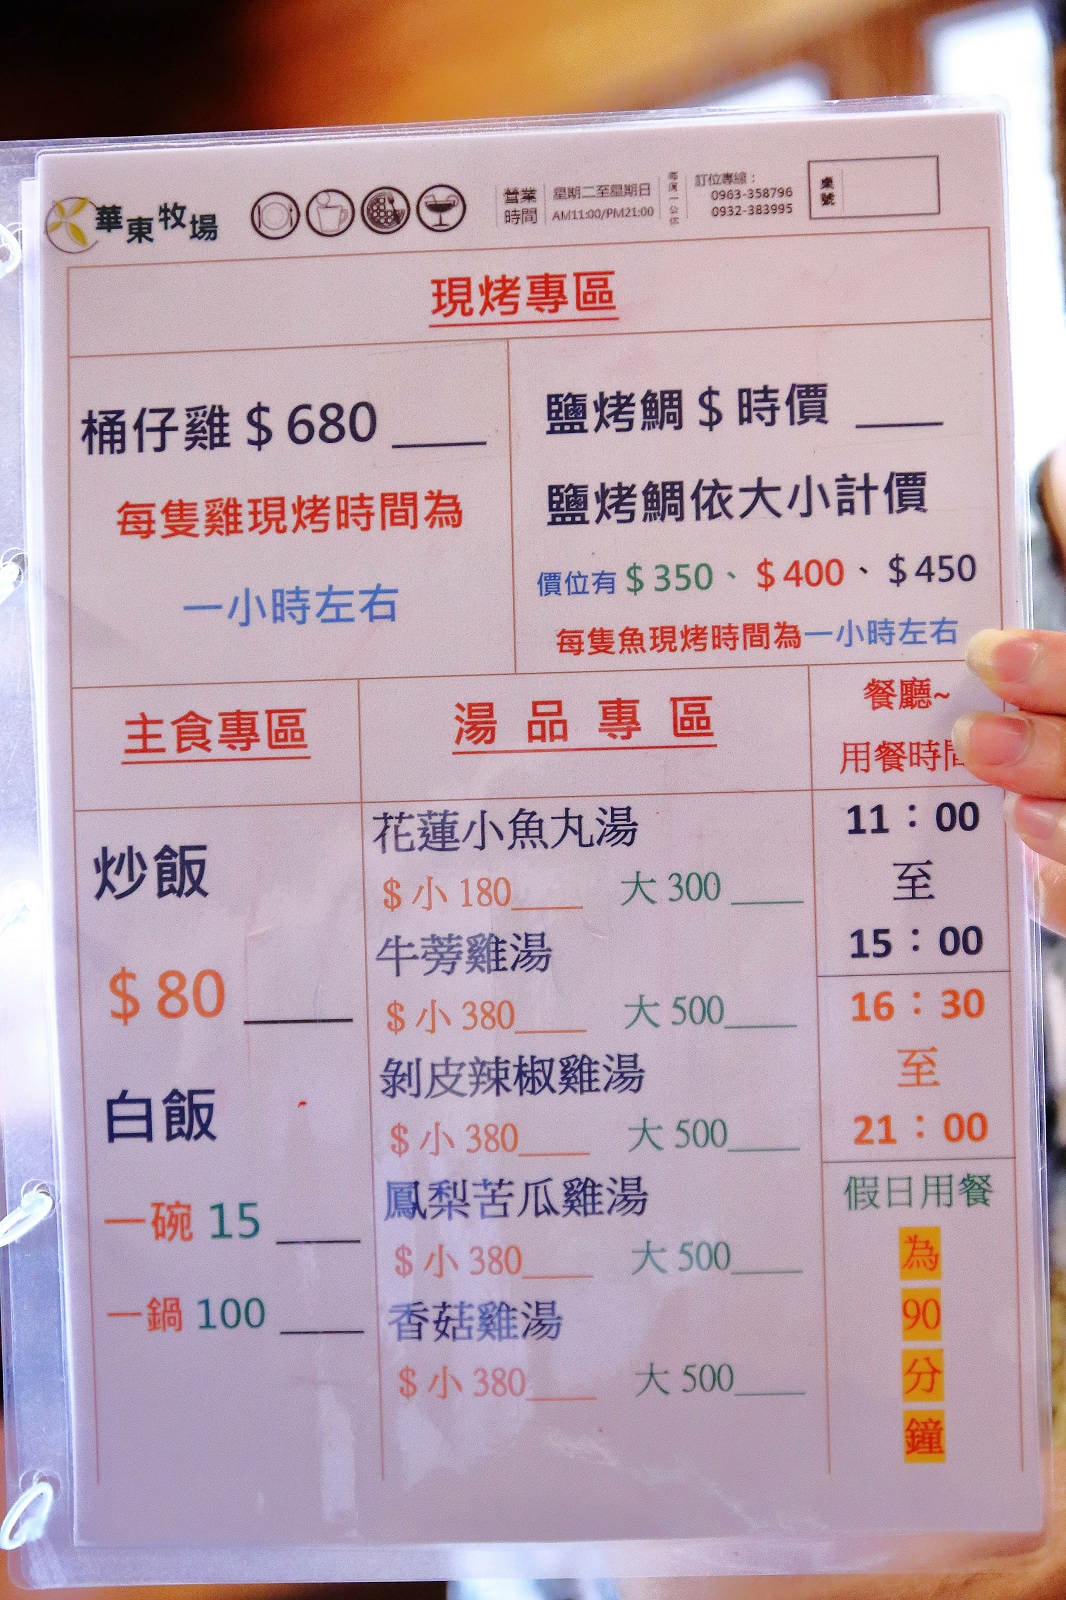 華東牧場
營業時間
星期二至星期日
AM11:00/PM21:00
每週一公休
訂位專線：
0963-358796
0932-383995
桌號
現烤專區
桶仔雞＄680 ____
每隻雞現烤時間為
一小時左右
鹽烤鯛＄時價 ____
鹽烤鯛依大小計價
價位有＄350、＄400、＄450
每隻魚現烤時間為一小時左右
主食專區
炒飯
＄80 ____
白飯
一碗 15 ____
一鍋 100 ____
湯品專區
花蓮小魚丸湯
＄小 180____ 大 300 ____
牛蒡雞湯
＄小 380____ 大 500____
剝皮辣椒雞湯
＄小 380____ 大 500____
鳳梨苦瓜雞湯
＄小 380____ 大 500____
香菇雞湯
＄小 380____ 大 500____
餐廳~
用餐時間
11：00
至
15：00
16：30
至
21：00
假日用餐
為
90
分
鐘